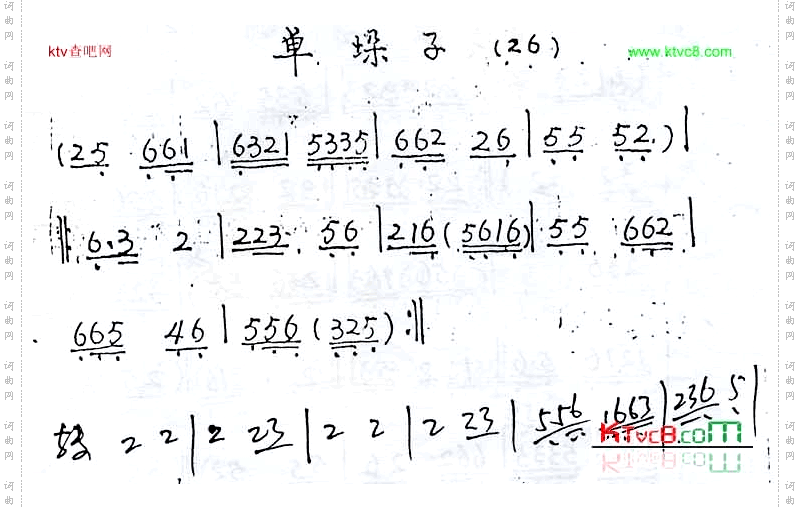 单垛子 (26)
ktv查吧网
www.ktvc8.com
(25 661 | 6321 5335 | 662 26 | 55 52.) |
‖: 6.3 2 | 223 56 | 216 (5616) | 55 662 |
665 46 | 556 (325) :‖
转 2 2 | 2 23 | 2 2 | 2 23 | 556 1663 | 236 5 |
KTvc8.com
词曲网
词曲网
词曲网
词曲网
词曲网
词曲网
词曲网
词曲网
词曲网
词曲网